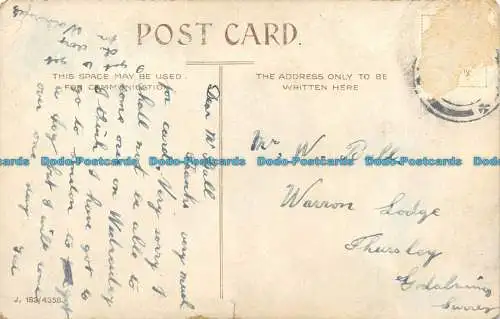 POST CARD.
THIS SPACE MAY BE USED
FOR COMMUNICATION
THE ADDRESS ONLY TO BE
WRITTEN HERE
Dear Mr Bull
Thanks very much
for card. Very sorry I
shall not be able to
come over on Wednesday
I think I have got to
go to London to
a day but I will come
over one day
Mr W. Bull
Warron Lodge
Thursley
Godalming
Surrey
J. 163/4358
Dado-Postcards Dado-Postcards Dado-Postcards Dado-Postcards